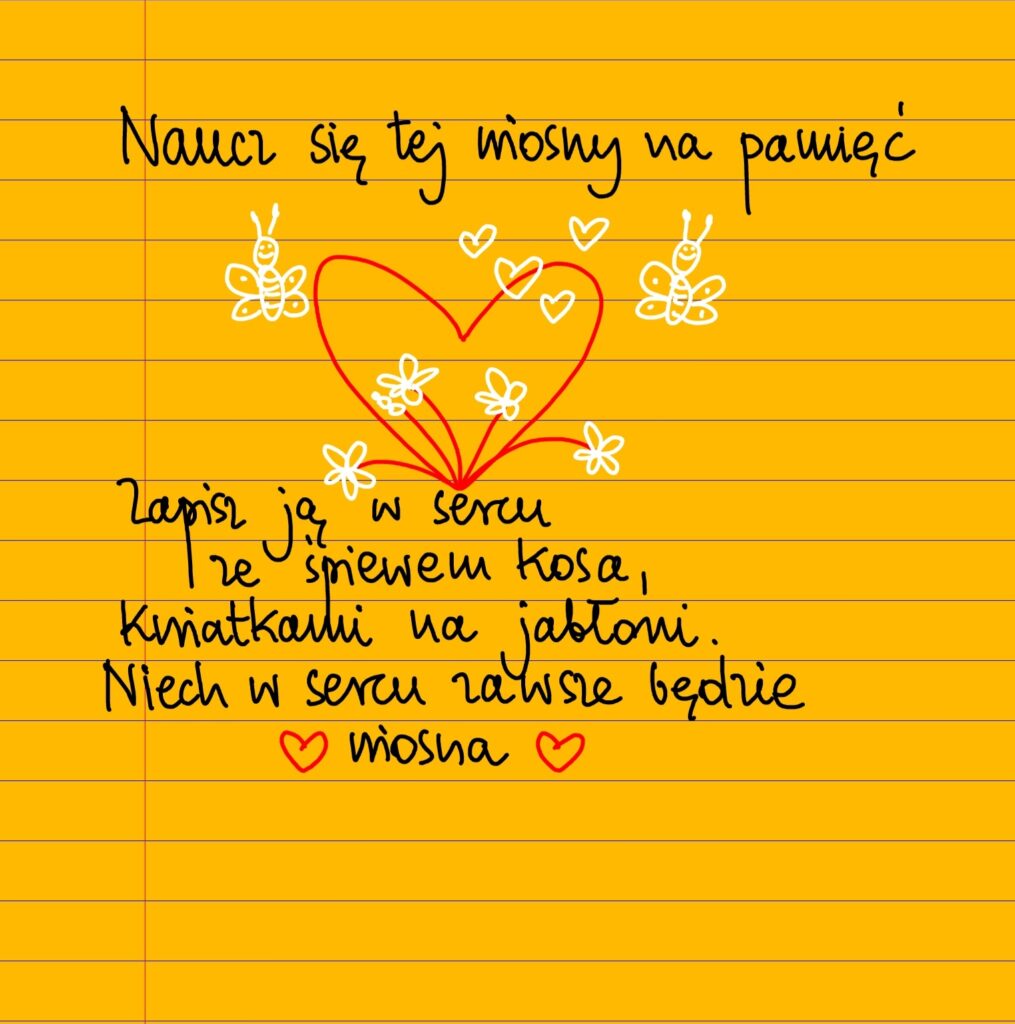 Naucz się tej wiosny na pamięć
Zapisz ją w sercu
ze śpiewem kosa,
kwiatkami na jabłoni.
Niech w sercu zawsze będzie
wiosna